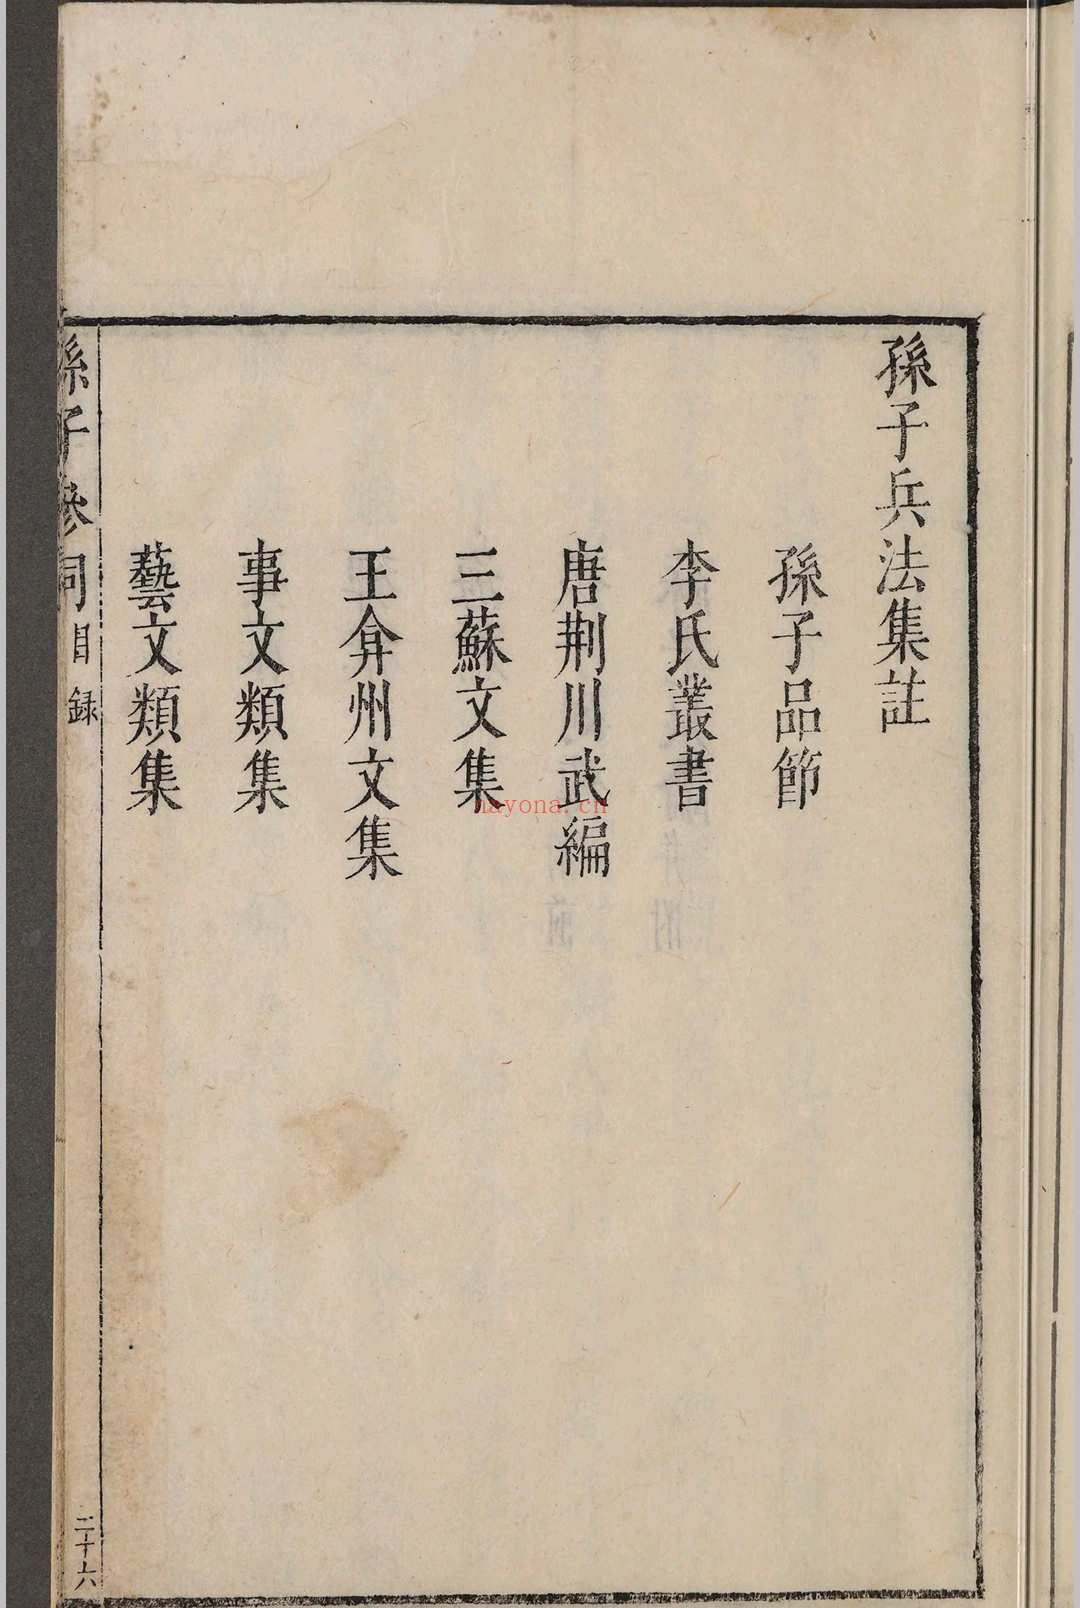 孫子兵法集註
孫子品節
李氏叢書
唐荆川武編
三蘇文集
王弇州文集
事文類集
藝文類集
孫子參同 目録 二十六
nayona.cn